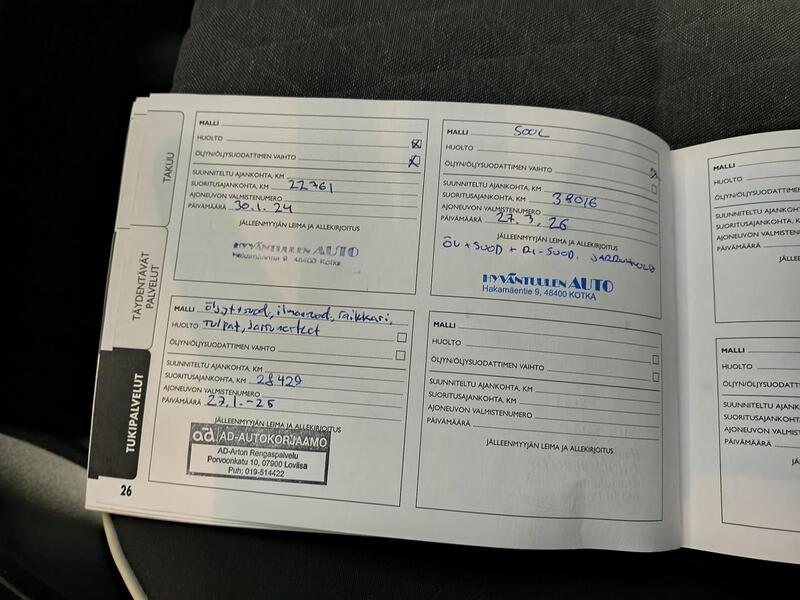 TAKUU
TÄYDENTÄVÄT
PALVELUT
TUKIPALVELUT
26
MALLI
HUOLTO
ÖLJYN/ÖLJYSUODATTIMEN VAIHTO
SUUNNITELTU AJANKOHTA, KM
SUORITUSAJANKOHTA, KM 22761
AJONEUVON VALMISTENUMERO
PÄIVÄMÄÄRÄ 30.1.24
JÄLLEENMYYJÄN LEIMA JA ALLEKIRJOITUS
HYVÄNTUULEN AUTO
Hakamäentie 9 48400 Kotka
MALLI 500L
HUOLTO
ÖLJYN/ÖLJYSUODATTIMEN VAIHTO
SUUNNITELTU AJANKOHTA, KM
SUORITUSAJANKOHTA, KM 38016
AJONEUVON VALMISTENUMERO
PÄIVÄMÄÄRÄ 27.3.26
JÄLLEENMYYJÄN LEIMA JA ALLEKIRJOITUS
ÖL + SUOD + RI-SUOD.
HYVÄNTUULEN AUTO
Hakamäentie 9, 48400 KOTKA
MALLI öljyt+suod, ilmansuod, raikkari,
HUOLTO tulpat, jarrunesteet
ÖLJYN/ÖLJYSUODATTIMEN VAIHTO
SUUNNITELTU AJANKOHTA, KM
SUORITUSAJANKOHTA, KM 28429
AJONEUVON VALMISTENUMERO
PÄIVÄMÄÄRÄ 27.1.-25
JÄLLEENMYYJÄN LEIMA JA ALLEKIRJOITUS
ad AD-AUTOKORJAAMO
AD-Arton Rengaspalvelu
Porvoonkatu 10, 07900 Loviisa
Puh; 019-514422
MALLI
HUOLTO
ÖLJYN/ÖLJYSUODATTIMEN VAIHTO
SUUNNITELTU AJANKOHTA, KM
SUORITUSAJANKOHTA, KM
AJONEUVON VALMISTENUMERO
PÄIVÄMÄÄRÄ
JÄLLEENMYYJÄN LEIMA JA ALLEKIRJOITUS
MALLI
HUOLTO
ÖLJYN/ÖLJYSUODATTIMEN
SUUNNITELTU AJANKOHTA
SUORITUSAJANKOHTA, KM
AJONEUVON VALMISTENU
PÄIVÄMÄÄRÄ
MALLI
HUOLTO
ÖLJYN/ÖLJYSUODATT
SUUNNITELTU AJANKO
SUORITUSAJANKOHTA
AJONEUVON VALMIST
PÄIVÄMÄÄRÄ